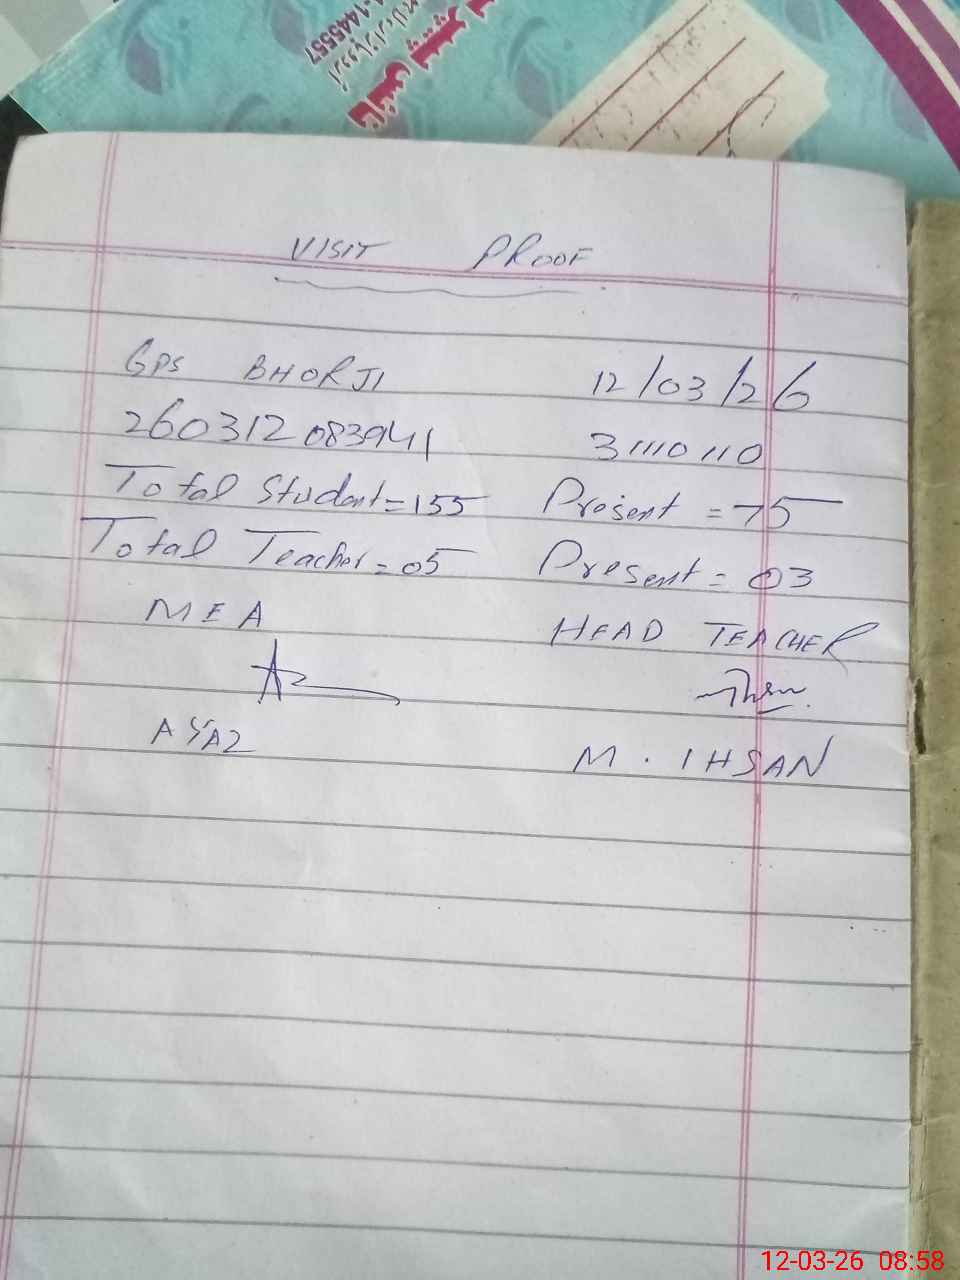 1445557
VISIT PROOF
GPS BHORJI 12/03/26
260312083941 31110110
Total Student = 155 Present = 75
Total Teacher = 05 Present = 03
MEA HEAD TEACHER
AYAZ M. IHSAN
12-03-26 08:58